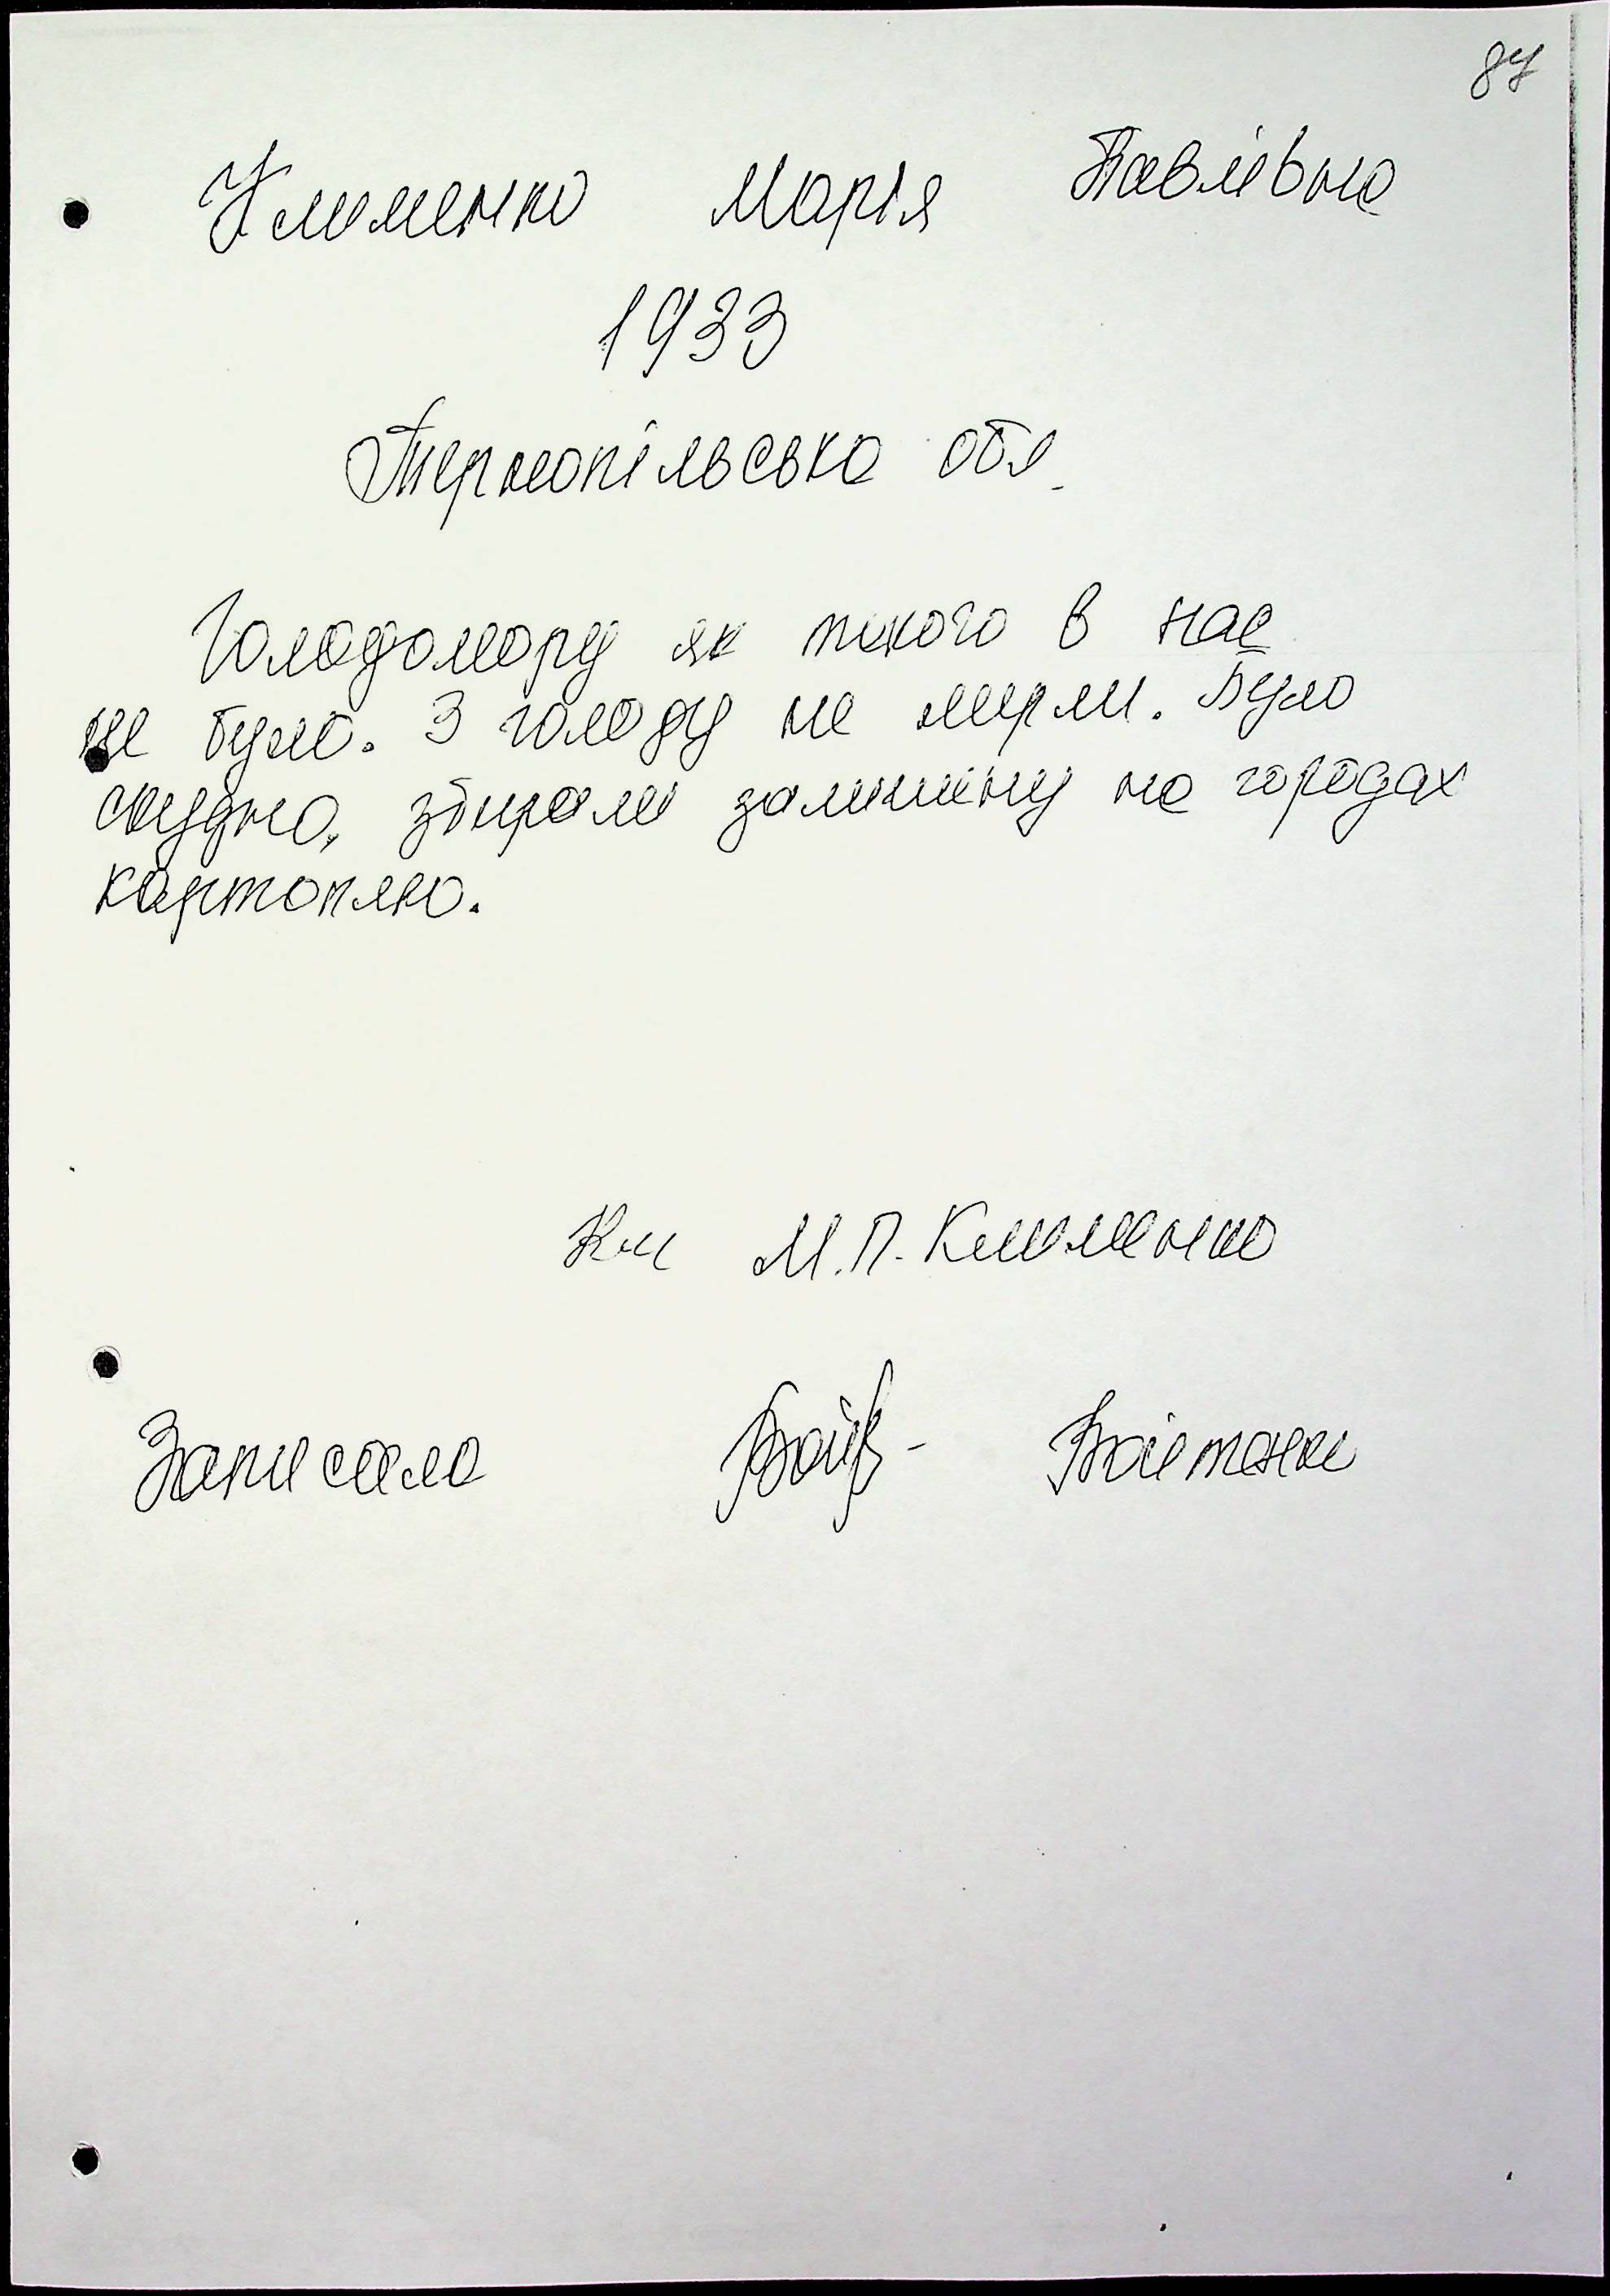 87
Клименко Марія Павлівна
1933
Тернопільська обл.
Голодомору як такого в нас
не було. З голоду не мерли. Було
скудно, збирали залишену на городах
картоплю.
М.П. Клименко
Записала